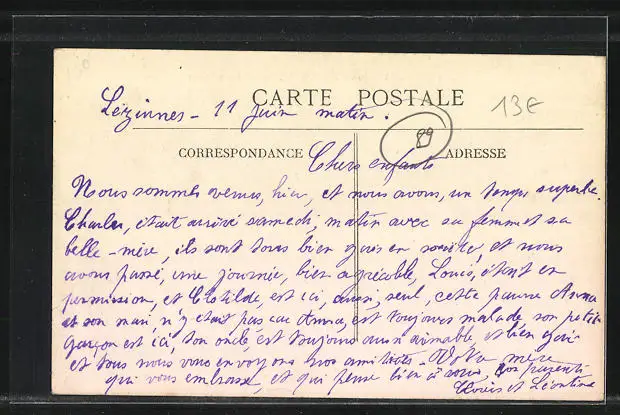 CARTE POSTALE
13€
Lézinnes - 11 juin matin.
89
CORRESPONDANCE
ADRESSE
Chers enfants
Nous sommes venus, hier, et nous avons, un temps superbe
Charles, était arrivé samedi, matin avec sa femme et sa
belle-mère, ils sont tous bien et nous
avons passé, une journée, bien agréable, Louis, étant en
permission, et Clotilde, est ici, aussi, seul, cette pauvre Anna
et son mari n'y était pas car Anna, est toujours malade son petit
garçon est ici, ton oncle, est toujours aussi aimable, et bien gai
et tous nous vous envoyons nos amitiés - Votre mère
qui vous embrasse, et qui pense bien à vous, vos parents
Louis et Léontine